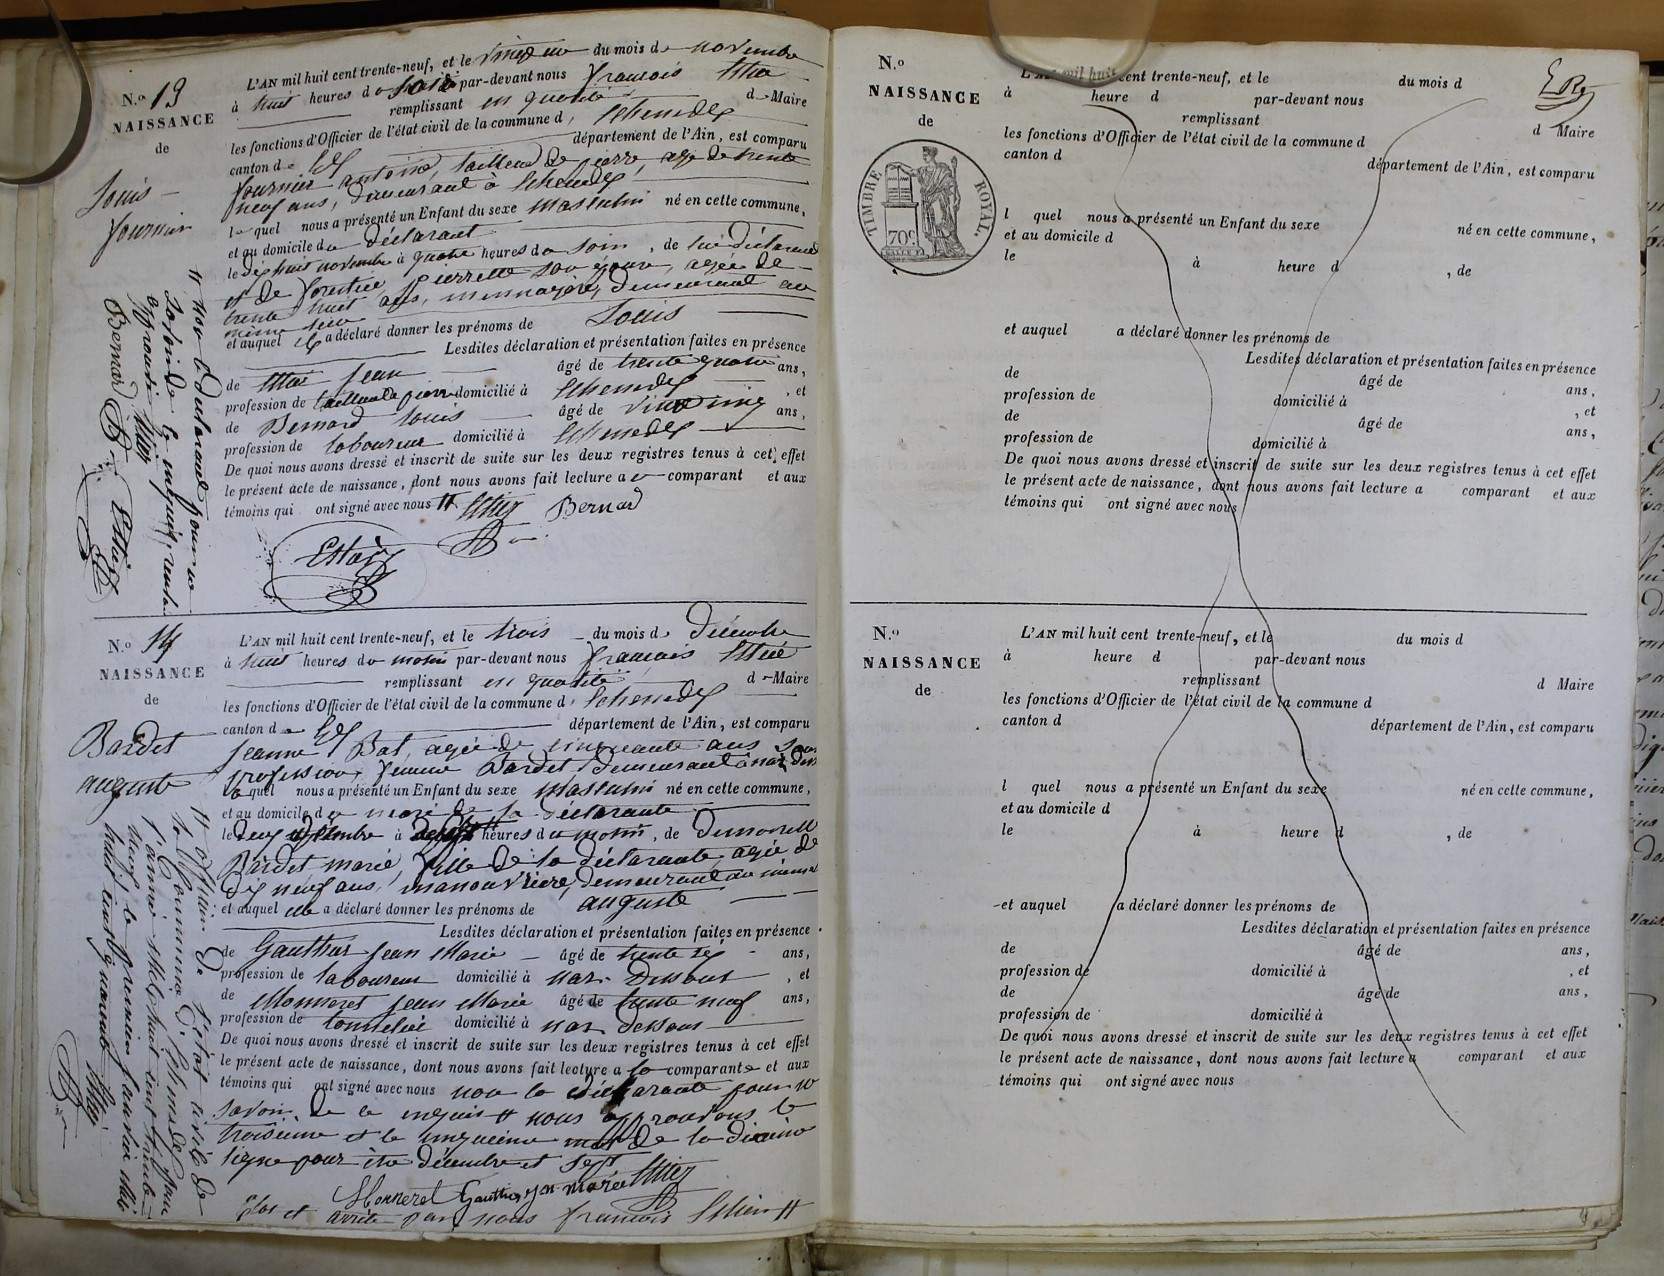 N.º 13
NAISSANCE
de
Louis
fournier
L'AN mil huit cent trente-neuf, et le vingt un du mois de novembre
à huit heures du soir par-devant nous françois
remplissant en qualité de Maire
les fonctions d'Officier de l'état civil de la commune d' Echenevex
canton de Gex département de l'Ain, est comparu
fournier antoine, tailleur de pierre, agé de trente
neuf ans, demeurant à Echenevex
lequel nous a présenté un Enfant du sexe masculin né en cette commune,
et au domicile du déclarant
le dix huit novembre à quatre heures du soir, de lui déclarant
et de pierrette son épouse, agée de
trente huit ans, mennagère, demeurant au
même lieu
et auquel il a déclaré donner les prénoms de Louis
Lesdites déclaration et présentation faites en présence
de jean âgé de trente quatre ans,
profession de tailleur de pierre domicilié à Echenevex, et
de Bernard louis âgé de vingt cinq ans,
profession de laboureur domicilié à Echenevex
De quoi nous avons dressé et inscrit de suite sur les deux registres tenus à cet effet
le présent acte de naissance, dont nous avons fait lecture au comparant et aux
témoins qui ont signé avec nous Bernard
non le déclarant pour ne
savoir de ce enquis,
approuvé
Bernard
N.º 14
NAISSANCE
de
Bardet
auguste
L'AN mil huit cent trente-neuf, et le trois du mois de Décembre
à huit heures du matin par-devant nous françois
remplissant en qualité de Maire
les fonctions d'Officier de l'état civil de la commune d' Echenevex
canton de Gex département de l'Ain, est comparu
jeanne Bat, agée de cinquante ans sans
profession, femme Bardet, demeurant à naz dessus
laquel nous a présenté un Enfant du sexe masculin né en cette commune,
et au domicile du mari de la déclarante
le deux à heures du matin, de Demoiselle
Bardet marie, fille de la déclarante, agée de
dix neuf ans, manouvrière, demeurant au même
et auquel elle a déclaré donner les prénoms de auguste
Lesdites déclaration et présentation faites en présence
de Gauthier jean Marie âgé de trente six ans,
profession de laboureur domicilié à naz Dessous, et
de Monneret jean Marie âgé de trente neuf ans,
profession de domicilié à naz dessous
De quoi nous avons dressé et inscrit de suite sur les deux registres tenus à cet effet
le présent acte de naissance, dont nous avons fait lecture a la comparante et aux
témoins qui ont signé avec nous non la déclarante pour ne
savoir de ce enquis # nous approuvons le
troisième et le cinquième mot de la dixième
ligne pour être décembre et sept
Monneret Gauthier jn marie
Clos et arrêté par nous françois
officier de l'état civil de
la Commune d'Echenevex pour
l'année mil huit cent trente
neuf le premier janvier mil
huit cent quarante
N.º
NAISSANCE
de
TIMBRE ROYAL
70c
L'AN mil huit cent trente-neuf, et le du mois d
à heure d par-devant nous
remplissant d Maire
les fonctions d'Officier de l'état civil de la commune d
canton d département de l'Ain, est comparu
l quel nous a présenté un Enfant du sexe né en cette commune,
et au domicile d
le à heure d , de
et auquel a déclaré donner les prénoms de
Lesdites déclaration et présentation faites en présence
de âgé de ans,
profession de domicilié à , et
de âgé de ans,
profession de domicilié à
De quoi nous avons dressé et inscrit de suite sur les deux registres tenus à cet effet
le présent acte de naissance, dont nous avons fait lecture a comparant et aux
témoins qui ont signé avec nous
N.º
NAISSANCE
de
L'AN mil huit cent trente-neuf, et le du mois d
à heure d par-devant nous
remplissant d Maire
les fonctions d'Officier de l'état civil de la commune d
canton d département de l'Ain, est comparu
l quel nous a présenté un Enfant du sexe né en cette commune,
et au domicile d
le à heure d , de
et auquel a déclaré donner les prénoms de
Lesdites déclaration et présentation faites en présence
de âgé de ans,
profession de domicilié à , et
de âgé de ans,
profession de domicilié à
De quoi nous avons dressé et inscrit de suite sur les deux registres tenus à cet effet
le présent acte de naissance, dont nous avons fait lecture a comparant et aux
témoins qui ont signé avec nous